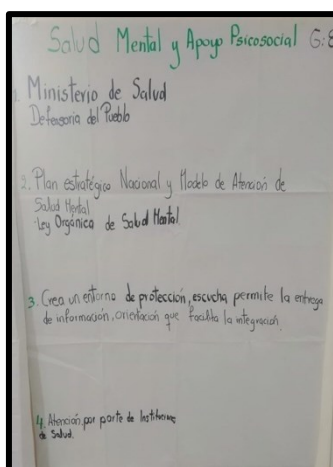 Salud Mental y Apoyo Psicosocial G:8
1. Ministerio de Salud
Defensoria del Pueblo
2. Plan estratégico Nacional y Modelo de Atención de
Salud Mental
Ley Orgánica de Salud Mental.
3. Crea un entorno de protección, escucha, permite la entrega
de información, orientación que facilita la integración.
4. Atención por parte de Instituciones
de Salud.